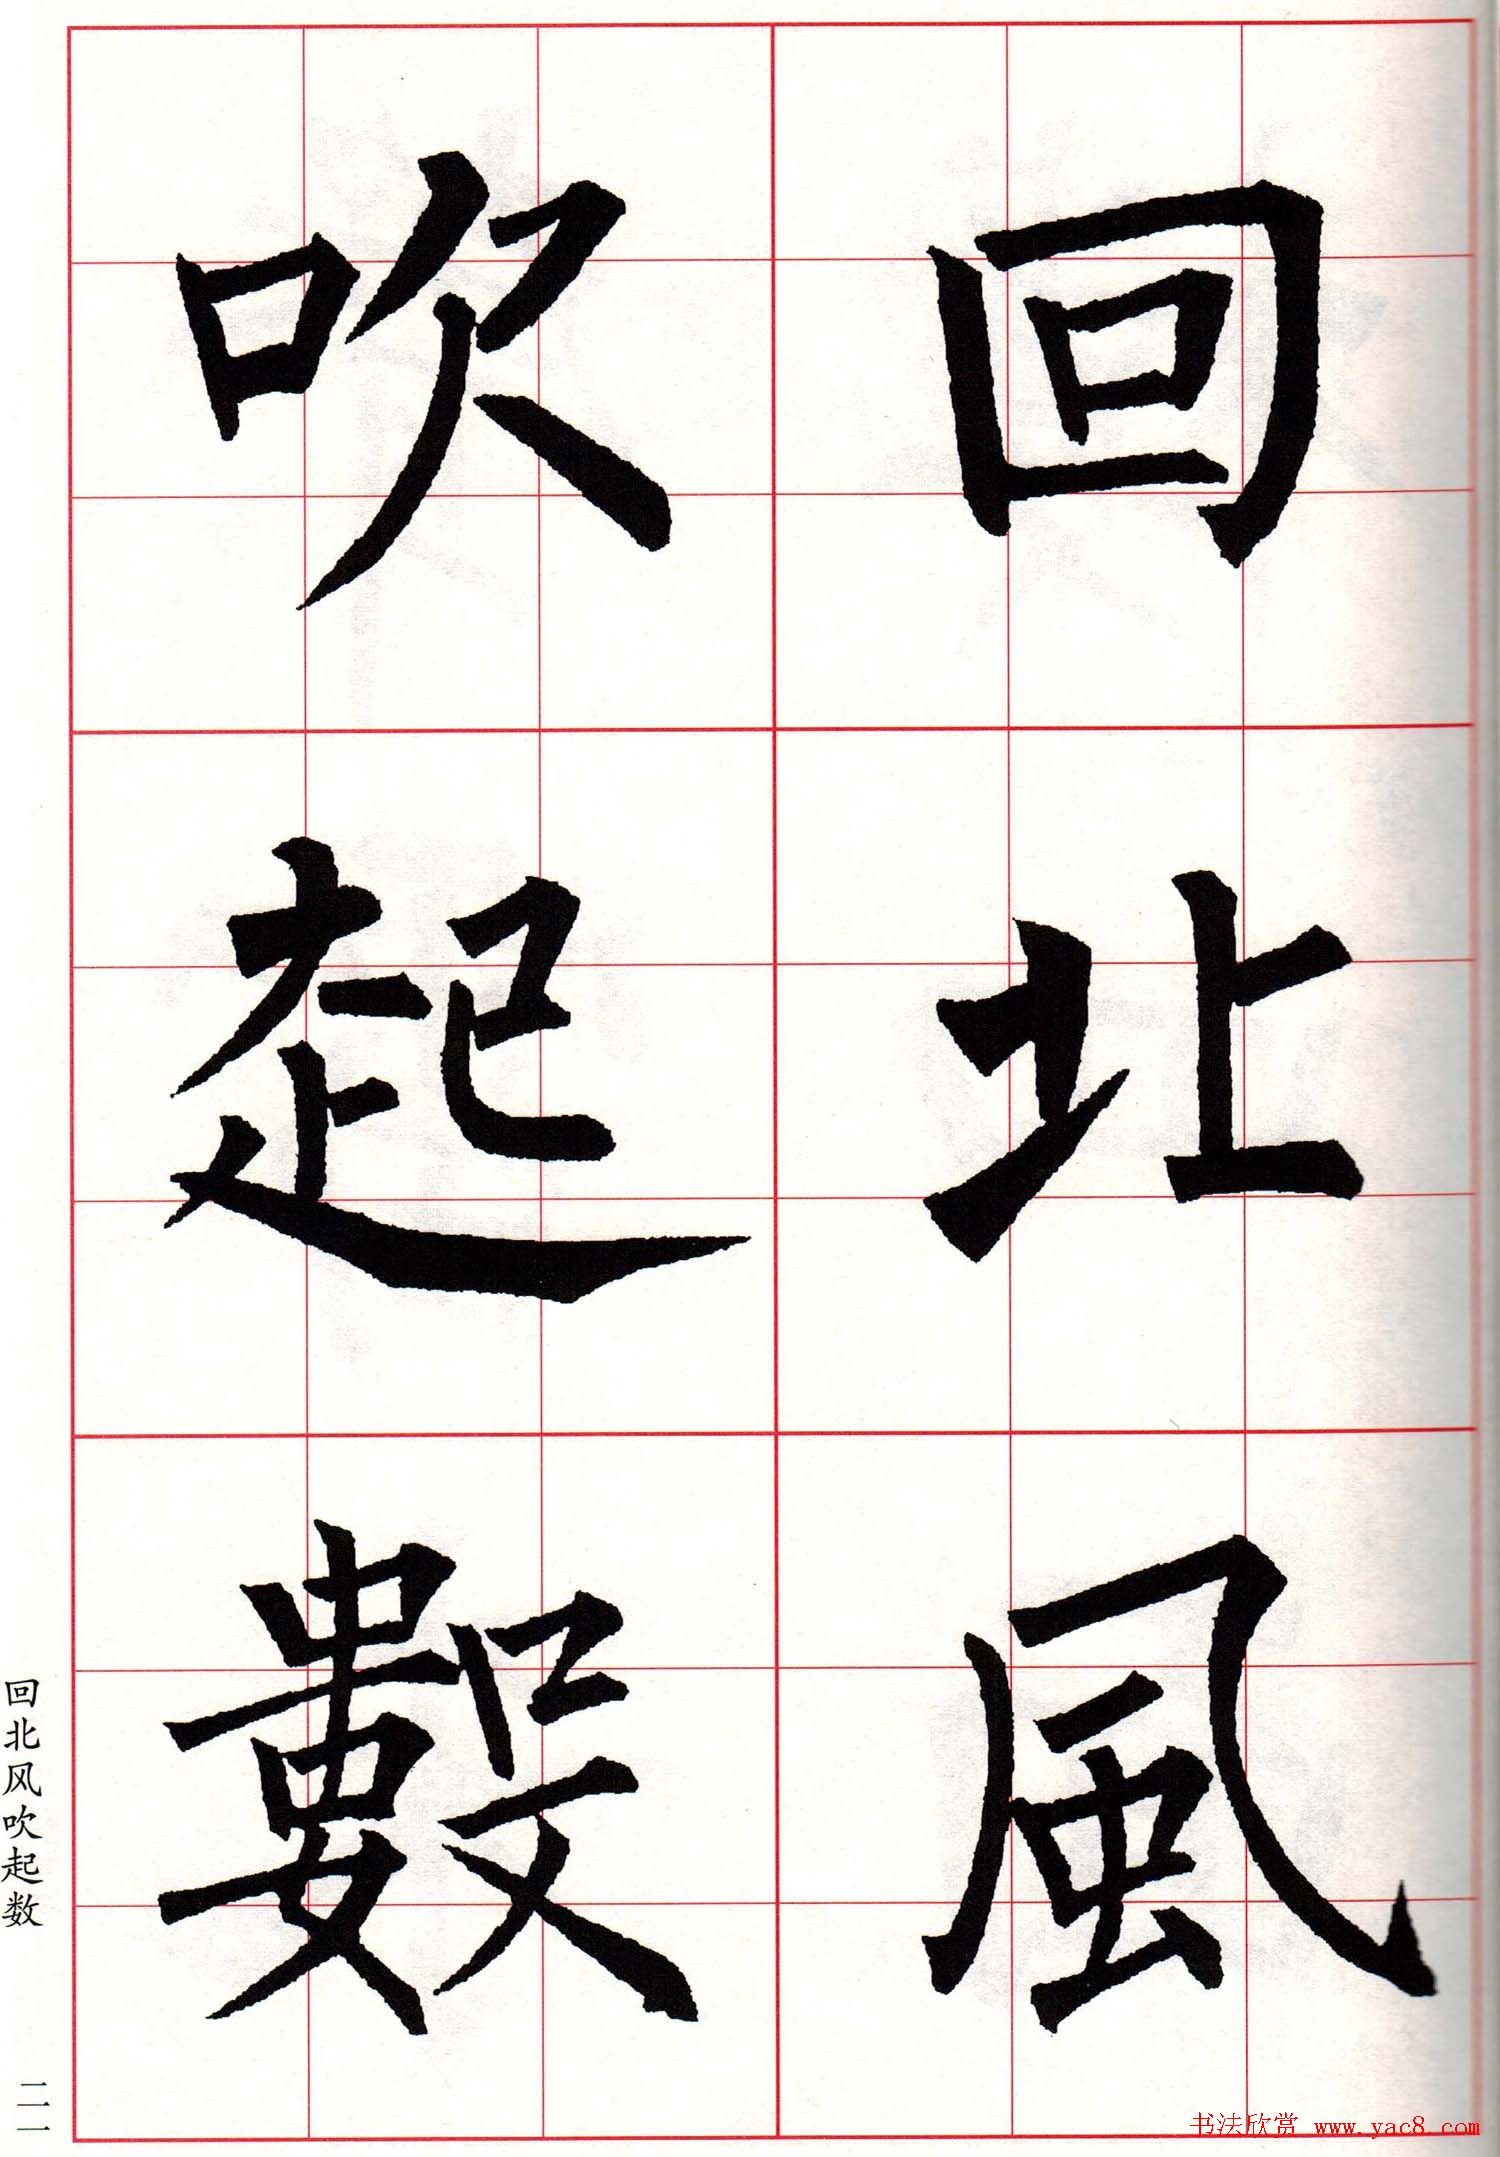 回北風
吹起數
回北风吹起数
二一
书法欣赏 www.yac8.com